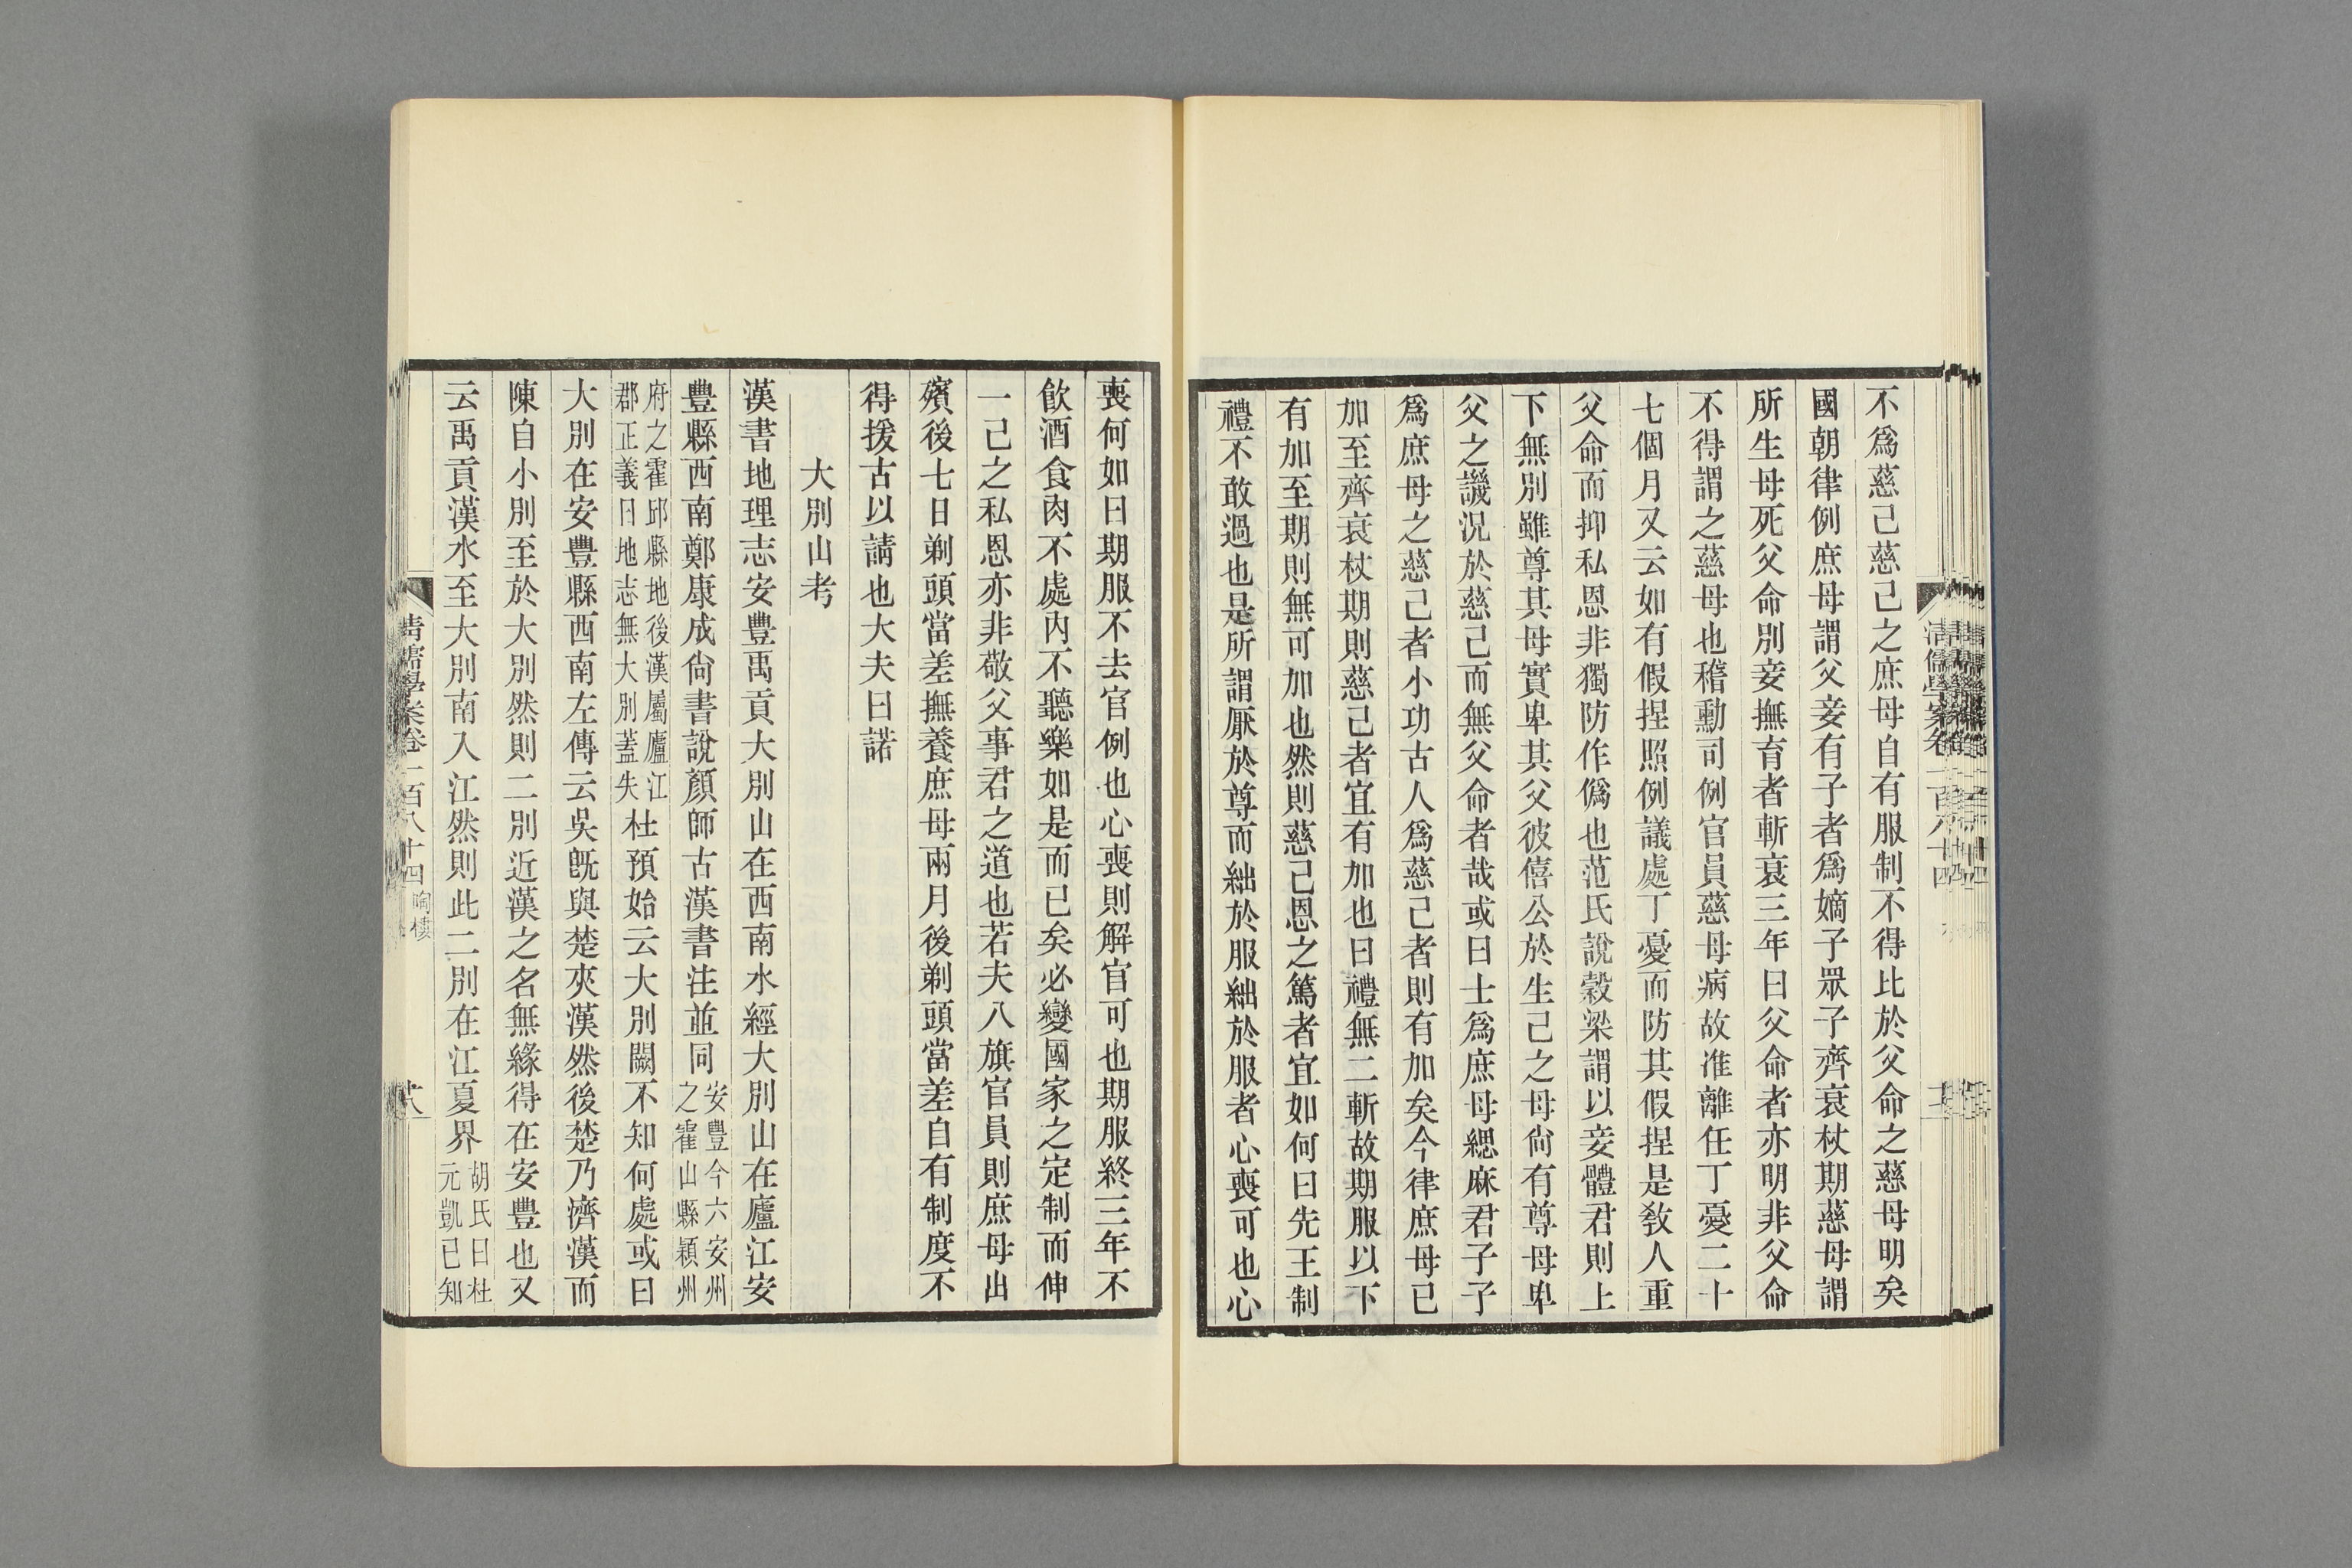 不爲慈己慈己之庶母自有服制不得比於父命之慈母明矣
國朝律例庶母謂父妾有子者爲嫡子眾子齊衰杖期慈母謂
所生母死父命別妾撫育者斬衰三年曰父命者亦明非父命
不得謂之慈母也稽勳司例官員慈母病故准離任丁憂二十
七個月又云如有假捏照例議處丁憂而防其假捏是教人重
父命而抑私恩非獨防作僞也范氏說穀梁謂以妾體君則上
下無別雖尊其母實卑其父彼僖公於生己之母尙有尊母卑
父之譏況於慈己而無父命者哉或曰士爲庶母緦麻君子子
爲庶母之慈己者小功古人爲慈己者則有加矣今律庶母已
加至齊衰杖期則慈己者宜有加也曰禮無二斬故期服以下
有加至期則無可加也然則慈己恩之篤者宜如何曰先王制
禮不敢過也是所謂厭於尊而絀於服絀於服者心喪可也心
喪何如曰期服不去官例也心喪則解官可也期服終三年不
飮酒食肉不處內不聽樂如是而已矣必變國家之定制而伸
一己之私恩亦非敬父事君之道也若夫八旗官員則庶母出
殯後七日剃頭當差撫養庶母兩月後剃頭當差自有制度不
得援古以請也大夫曰諾
大別山考
漢書地理志安豐禹貢大別山在西南水經大別山在廬江安
豐縣西南鄭康成尙書說顏師古漢書注並同安豐今六安州之霍山縣潁州
府之霍邱縣地後漢屬廬江郡正義曰地志無大別蓋失杜預始云大別闕不知何處或曰
大別在安豐縣西南左傳云吳旣與楚夾漢然後楚乃濟漢而
陳自小別至於大別然則二別近漢之名無緣得在安豐也又
云禹貢漢水至大別南入江然則此二別在江夏界胡氏曰杜元凱已知
清儒學案卷一百八十四 陶樓 十八